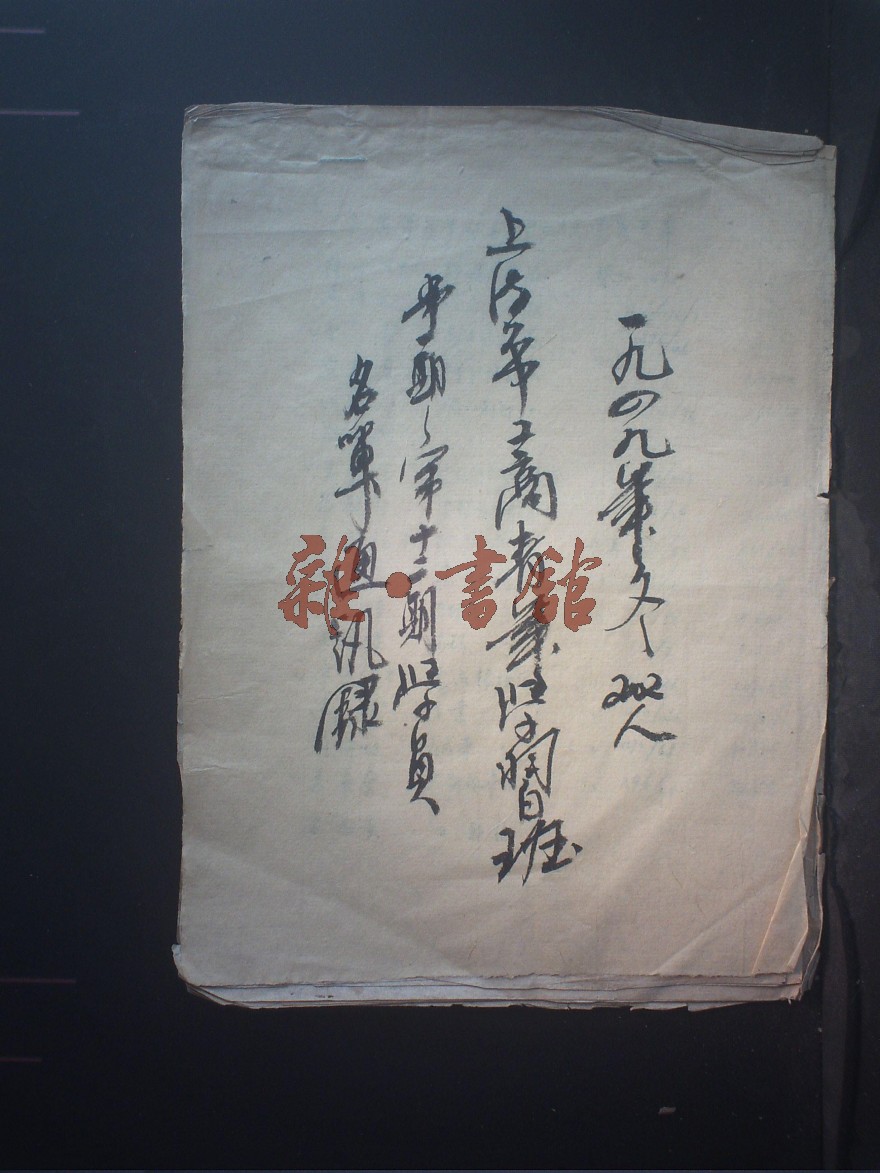 一九四九年冬 202人
上海市工商業學習班
期、第十二期學員
名單通訊錄
雜·書館